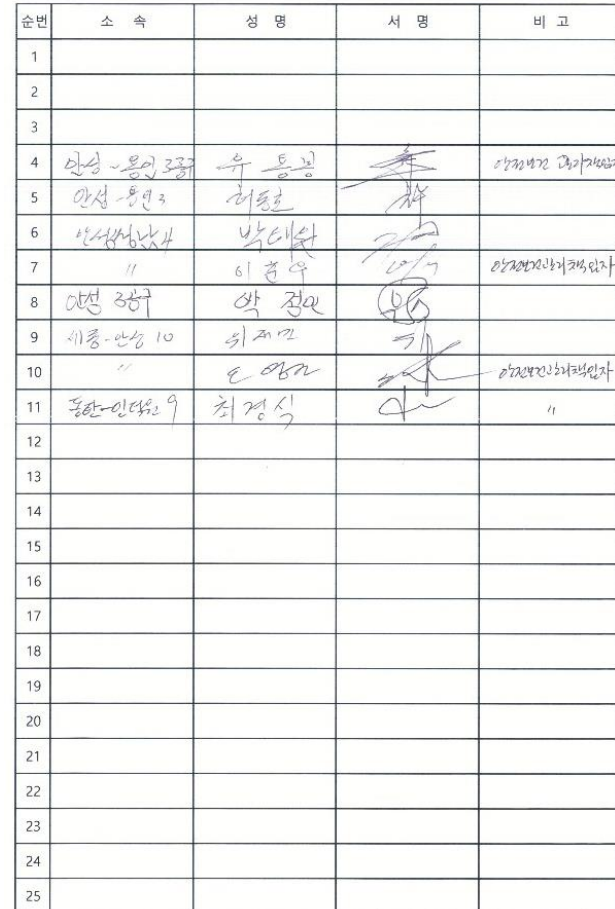 순번 소 속 성 명 서 명 비 고
1
2
3
4 안성~용인 3공구 유 안전보건
5 안성-용인 3 허동호
6 박태완
7 〃 이훈우 안전보건관리책임자
8 안성 3공구 박 정민
9 세종-안성 10 위재민
10 〃 안전보건관리책임자
11 동탄-인덕원 9 최경식 〃
12
13
14
15
16
17
18
19
20
21
22
23
24
25